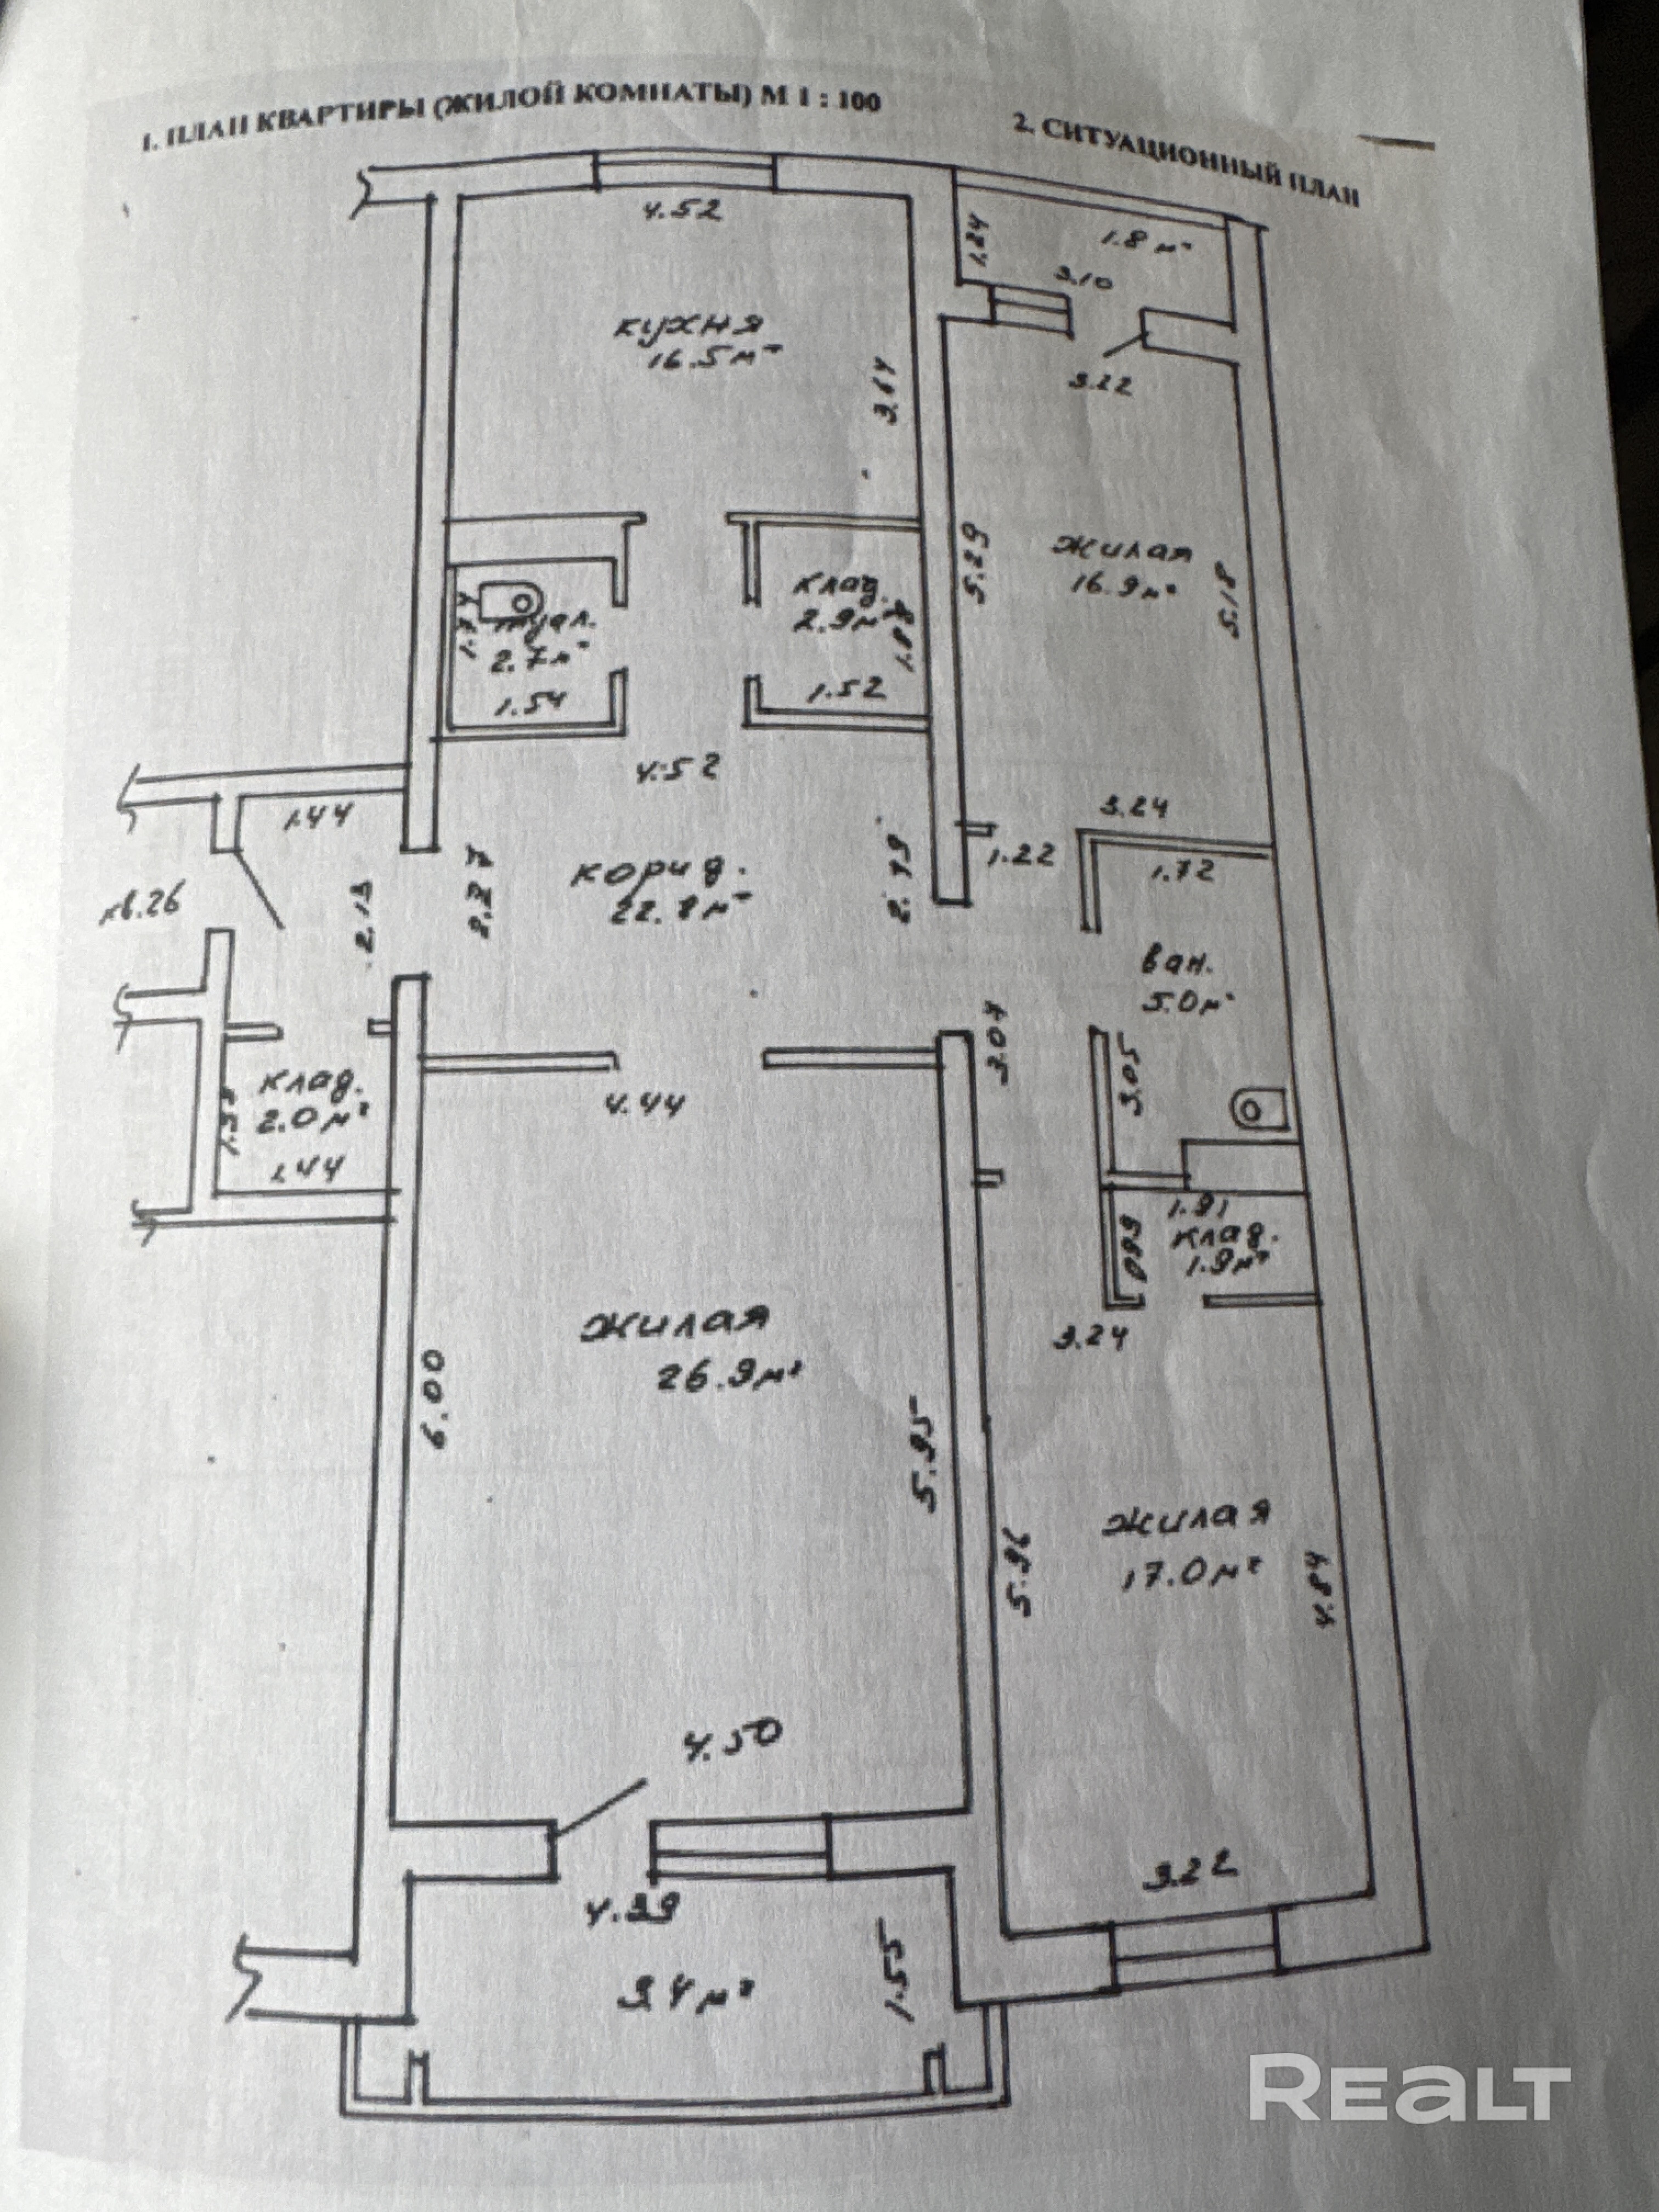 1. ПЛАН КВАРТИРЫ (ЖИЛОЙ КОМНАТЫ) М 1 : 100
2. СИТУАЦИОННЫЙ ПЛАН
4.52
1.24
1.8 м²
3.10
кухня
16.5 м²
3.64
3.22
5.29
жилая
16.9 м²
5.18
1.74
туал.
2.7 м²
1.54
клад.
2.9 м²
1.88
1.52
4.52
1.44
3.24
1.22
1.72
кв.26
2.13
корид.
22.8 м²
2.79
ван.
5.0 м²
3.04
3.05
клад.
2.0 м²
1.44
4.44
1.91
клад.
1.9 м²
0.99
3.24
жилая
26.9 м²
6.00
5.95
5.96
жилая
17.0 м²
4.84
4.50
3.22
4.39
3.4 м²
1.55
REALT